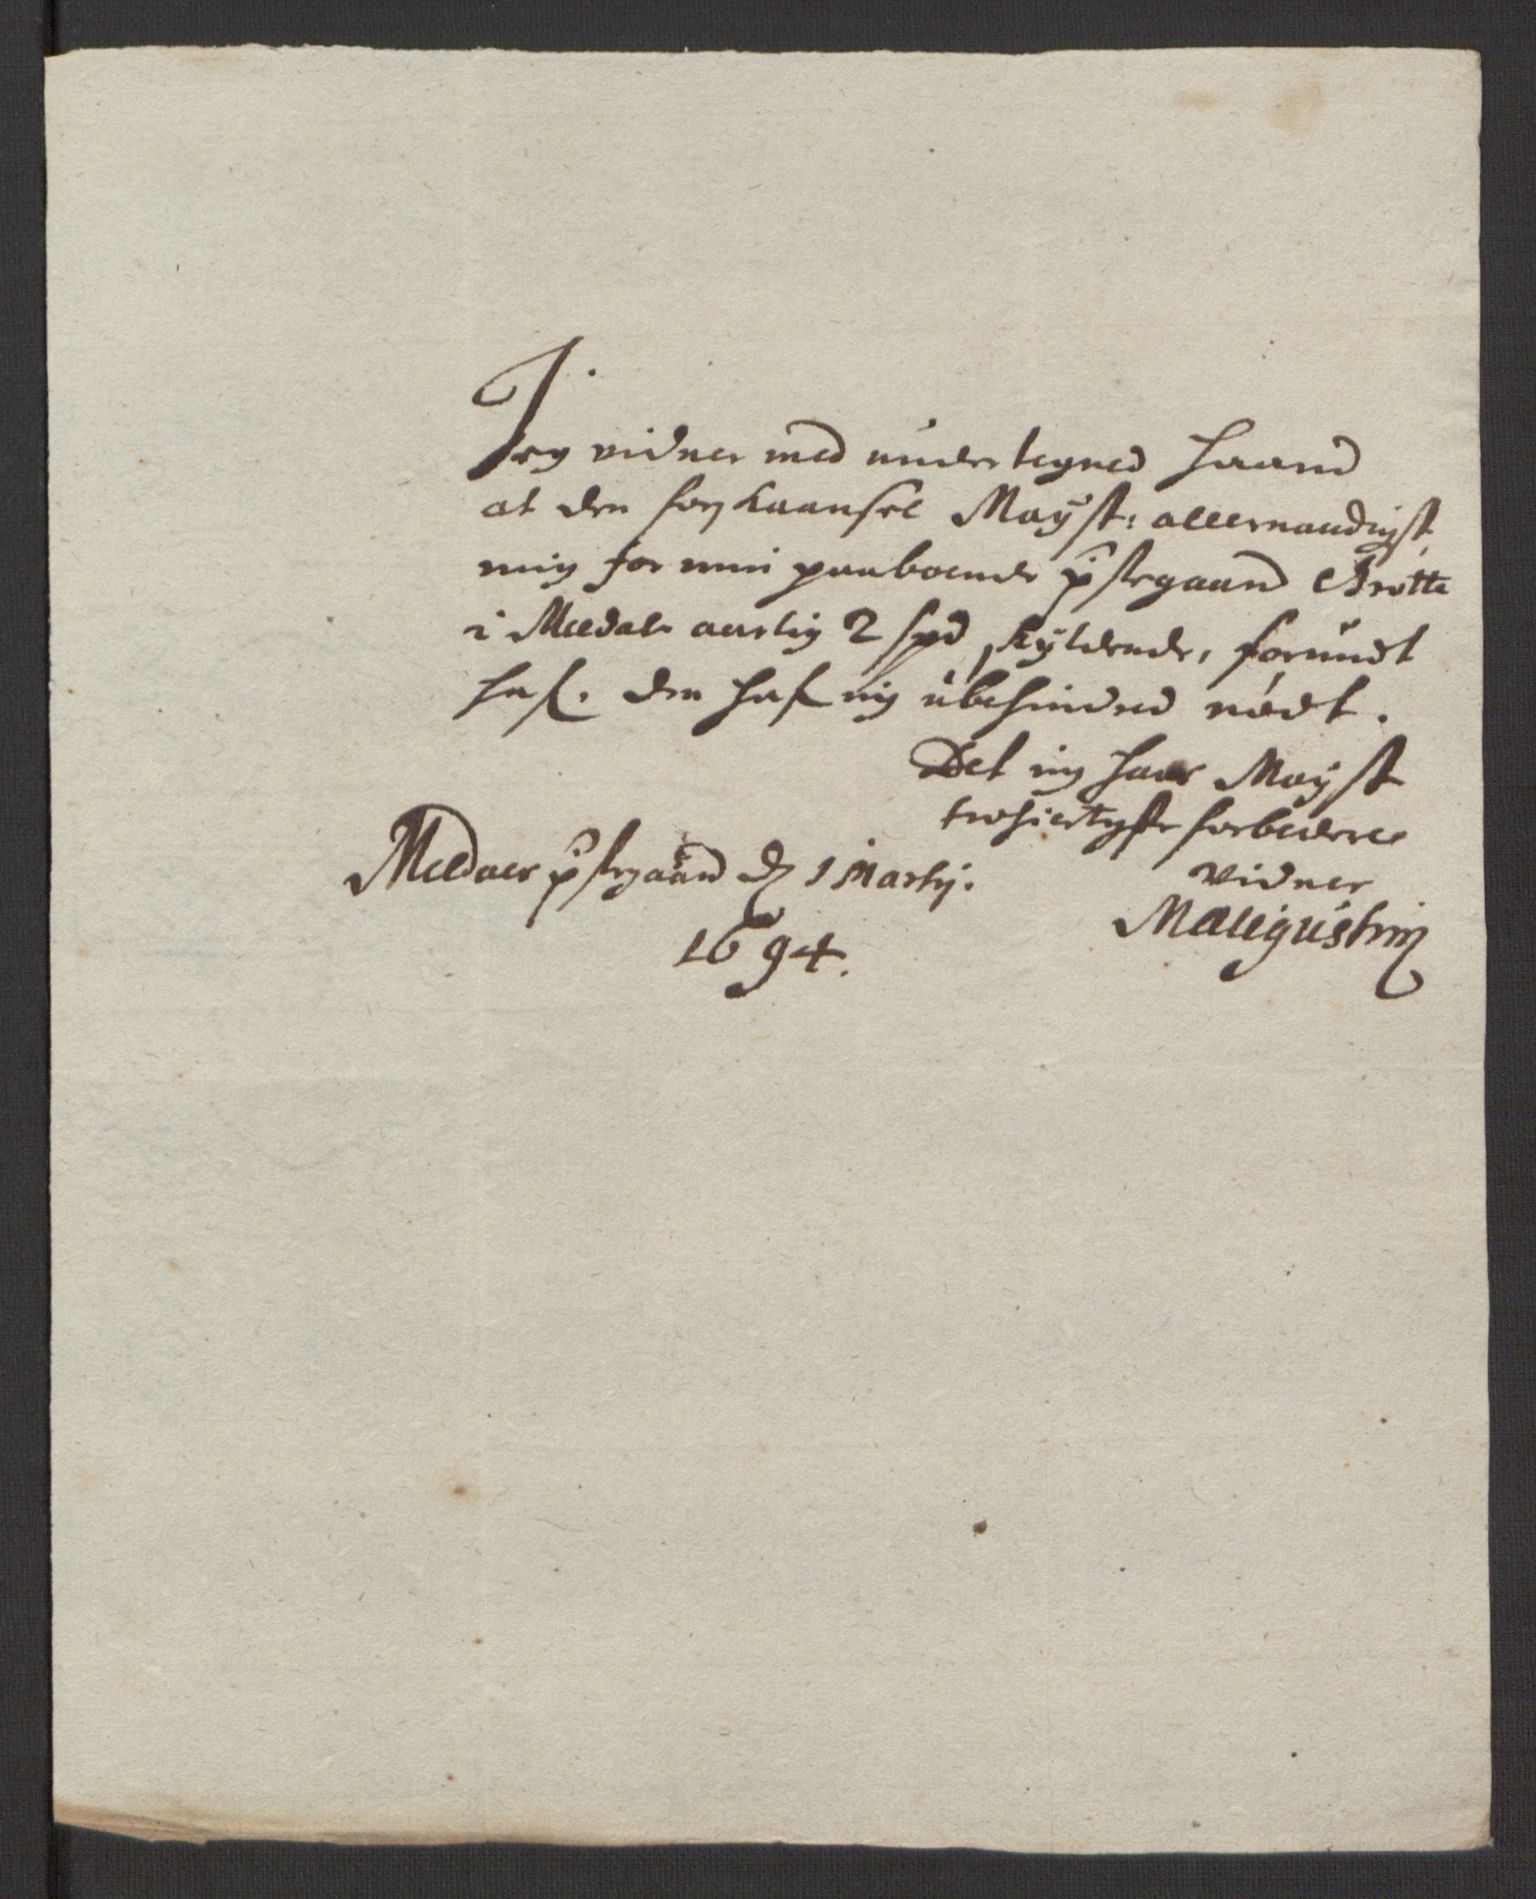 J.
Jeg vidner med undertegned haand
at den forskaansel Mayst: allernaadigst
mig for min paaboende p̈stegaard Grotte
i Meldals aarlig 2 spd skyldende, forundt
haf. den haf jeg ubehindred nødt.
Det jeg hans Mayst
trohiertigste forbedere
vidner
MAugustin
Meldals p̈stegaard dẽ 1 Martij.
1694.